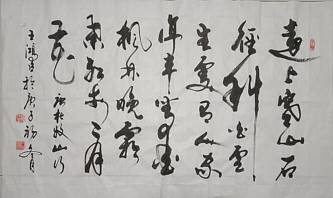 遠上寒山石
径斜白雲
生處有人家
停車坐愛
楓林晚霜
葉紅於二月
花 杜牧山行
王鴻 於庚子初冬月